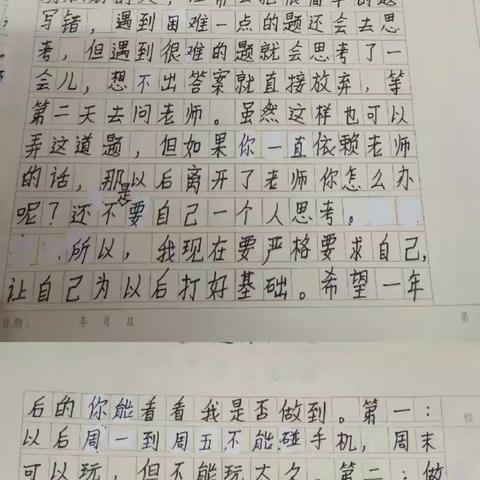 写错，遇到困难一点的题还会去思
考，但遇到很难的题就会思考了一
会儿，想不出答案就直接放弃，等
第二天去问老师。虽然这样也可以
弄这道题，但如果你一直依赖老师
的话，那以后离开了老师你怎么办
呢？还不是要自己一个人思考。
所以，我现在要严格要求自己，
让自己为以后打好基础。希望一年
日期： 年 月 日 第
后的你能看看我是否做到。第一：
以后周一到周五不能碰手机，周末
可以玩，但不能玩太久。第二：做